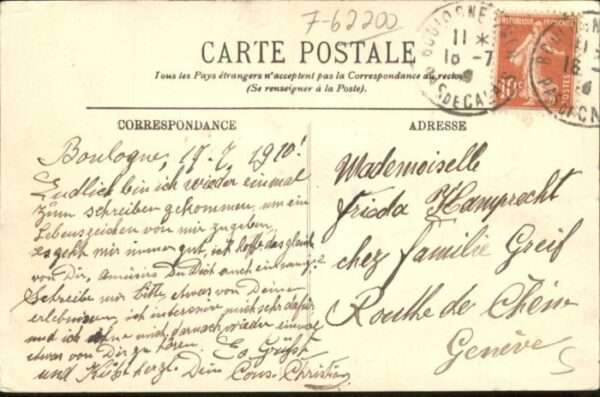 7-62200
CARTE POSTALE
Tous les Pays étrangers n'acceptent pas la Correspondance au recto
(Se renseigner à la Poste).
CORRESPONDANCE
ADRESSE
RÉPUBLIQUE FRANÇAISE
10c
BOULOGNE
11
16 -7
PAS DE CALAIS
Boulogne, 17. 7. 1910!
Endlich bin ich wieder einmal
zum schreiben gekommen, um ein
Lebenszeichen von mir zu geben.
es geht mir immer gut, ich hoffe das gleiche
von Dir, amüsirs Du Dich auch ein
Schreibe mir bitte, etwas von Deinen
erlebnissen, ich interessire mich sehr dafür
und ich mich darnach, wieder einmal
etwas von Dir zu hören. Es Grüsst
und Küsst herzl. Dein Cous. Christian
Mademoiselle
Frieda Hamprecht
chez Familie Greif
Routhe de Chêne
Genève